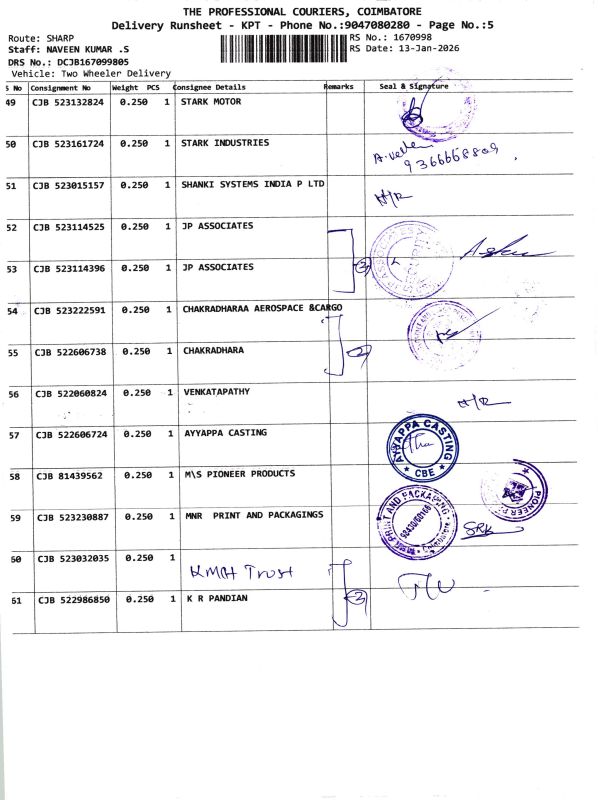 THE PROFESSIONAL COURIERS, COIMBATORE
Delivery Runsheet - KPT - Phone No.:9047080280 - Page No.:5
Route: SHARP
RS No.: 1670998
Staff: NAVEEN KUMAR .S
RS Date: 13-Jan-2026
DRS No.: DCJB167099805
Vehicle: Two Wheeler Delivery
S No Consignment No Weight PCS Consignee Details Remarks Seal & Signature
49 CJB 523132824 0.250 1 STARK MOTOR
50 CJB 523161724 0.250 1 STARK INDUSTRIES
9366668809
51 CJB 523015157 0.250 1 SHANKI SYSTEMS INDIA P LTD
H/R
52 CJB 523114525 0.250 1 JP ASSOCIATES
53 CJB 523114396 0.250 1 JP ASSOCIATES
2
54 CJB 523222591 0.250 1 CHAKRADHARAA AEROSPACE &CARGO
55 CJB 522606738 0.250 1 CHAKRADHARA
2
56 CJB 522060824 0.250 1 VENKATAPATHY
H/R
57 CJB 522606724 0.250 1 AYYAPPA CASTING
AYYAPPA CASTING
CBE
58 CJB 81439562 0.250 1 M\S PIONEER PRODUCTS
59 CJB 523230887 0.250 1 MNR PRINT AND PACKAGINGS
PRINT AND PACKAGING
SRK
60 CJB 523032035 0.250 1
KMCH Trust
61 CJB 522986850 0.250 1 K R PANDIAN
2